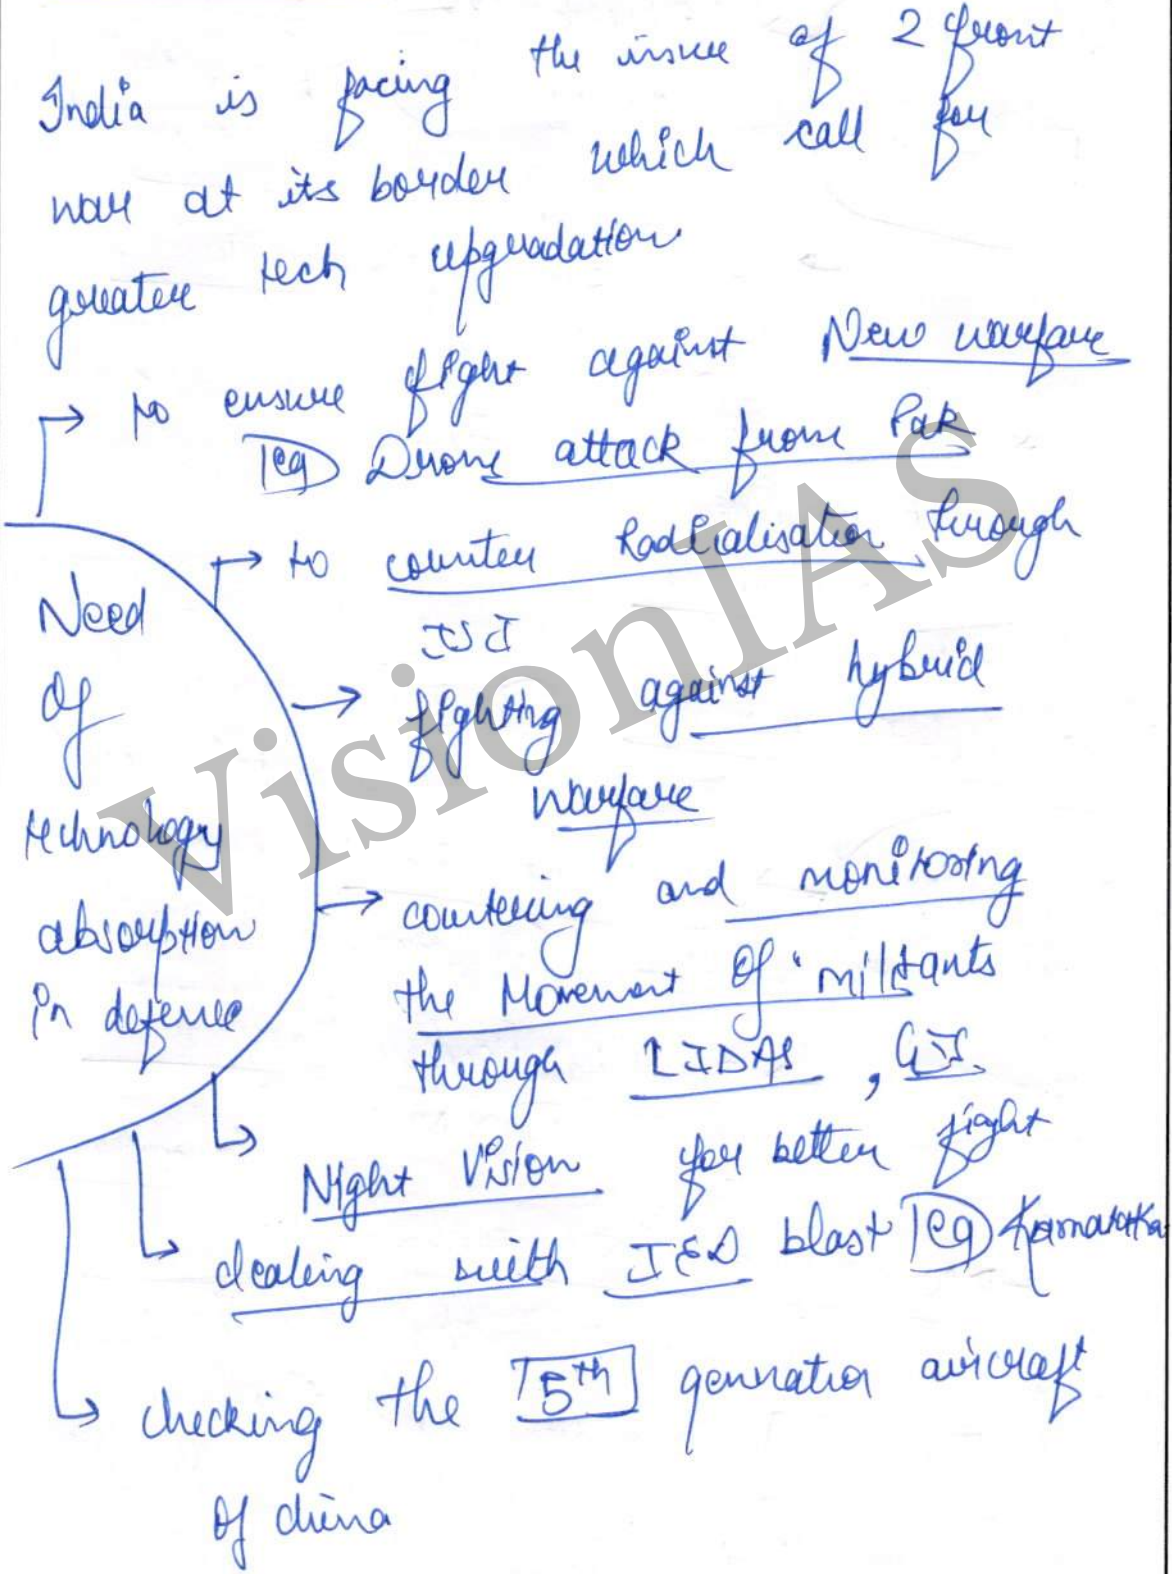 India is facing the issue of 2 front
war at its border which call for
greater tech upgradation
→ to ensure fight against New warfare
eg Drone attack from Pak
→ to counter Radicalisation through
ISI
Need
Of
technology
absorption
in defense
→ fighting against hybrid
warfare
→ countering and monitoring
the Movement Of militants
through LIDAS, GIS
Night Vision for better fight
dealing with IED blast eg Karnataka
checking the 5th generation aircraft
Of china
VisionIAS